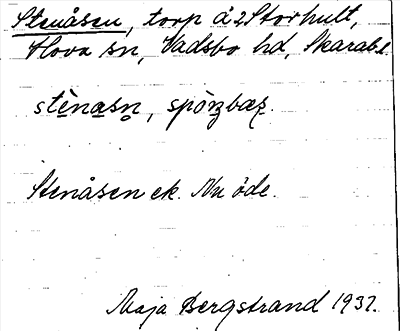 Stenåsen, torp å 2 Storhult,
Hova sn, Vadsbo hd, Skarab. l
stènasn,
Stenåsen ek. Nu öde.
Maja Bergstrand 1937.